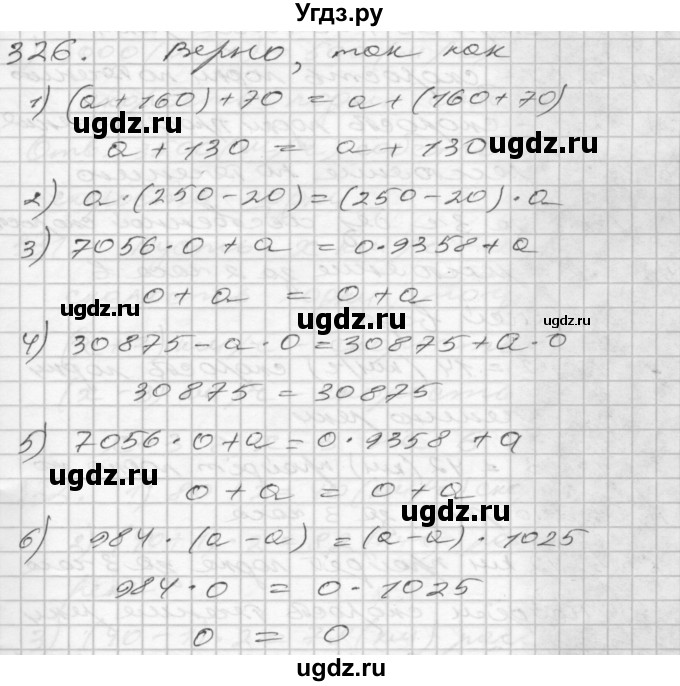 Угдз.ру
326. Верно, так как
1) (a+160)+70 = a+(160+70)
ugdz.ru
a+130 = a+130
ugdz.ru
2) a·(250-20)=(250-20)·a
3) 7056·0+a = 0·9358+a
0+a = 0+a
ugdz.ru
ugdz.ru
ugdz.ru
4) 30875-a·0=30875+a·0
30875=30875
5) 7056·0+a=0·9358+a
ugdz.ru
0+a = 0+a
ugdz.ru
6) 984·(a-a)=(a-a)·1025
984·0 = 0·1025
0 = 0
ugdz.ru